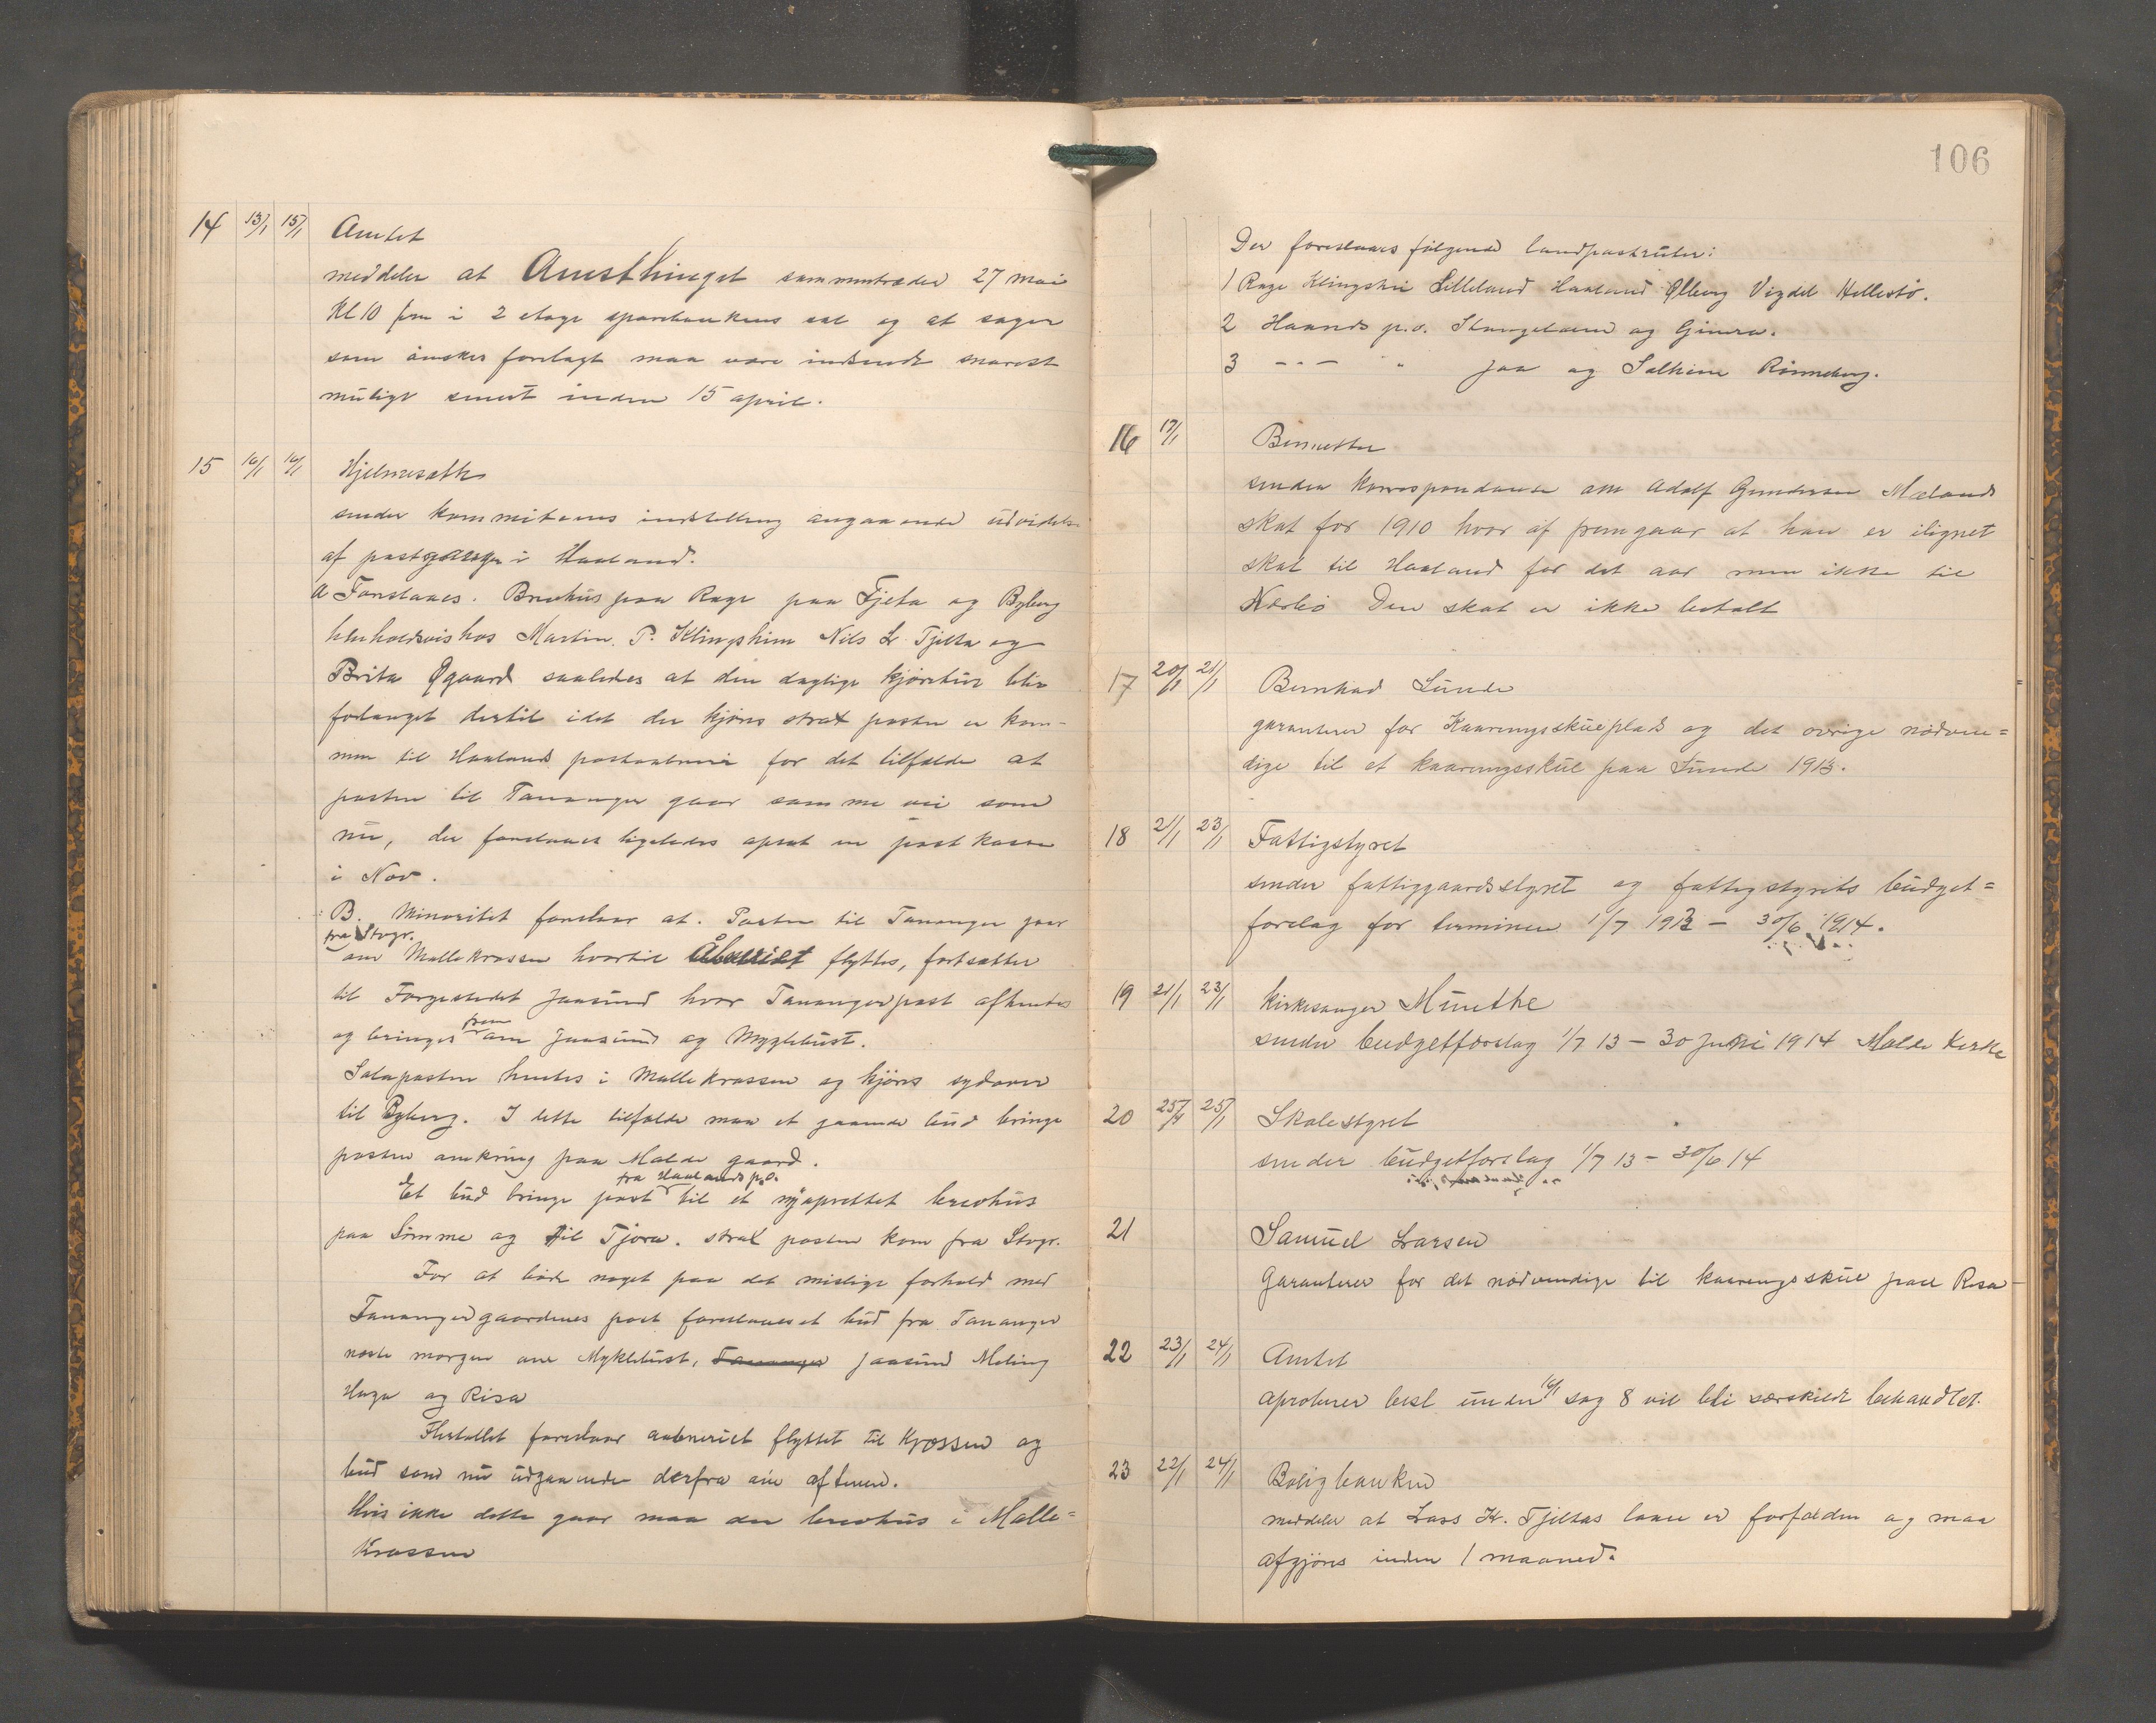 14 13/1 15/1 Amtet
meddeler at Amtsthinget sammentræder 27 mai
Kl 10 fm i 2 etage sparebankens sal og at sager
som ønskes forelagt maa være indsendt snarest
muligt senest inden 15 april.
15 16/1 16/1 Hjelmesæth
sender kommiteens indstilling angaaende udvidelse
af postgangen i Haaland.
A Foreslaaes. Brevhus paa Rege paa Tjelta og Byberg
henholdsvis hos Martin P. Klingsheim Nils Lr Tjelta og
Brita Øgaard saaledes at den daglige kjøretur blir
forlænget dertil idet der kjøres strax posten er kom-
men til Haalands postaabneri for det tilfælde at
posten til Tananger gaar samme vei som
nu, der foreslaaes ligeledes opsat en postkasse
i Nov.
B. Minoritet foreslaar at. Posten til Tananger gaar
fra Stvgr.
om Mallekrossen hvortil Åbneriet flyttes, fortsætter
til Færgestedet Jaasund hvor Tanangerpost afhentes
og bringes frem om Jaasund og Myglebust.
Solaposten hentes i Mallekrossen og kjøres sydover
til Byberg. I dette tilfælde maa et gaaende bud bringe
posten omkring paa Malde gaard.
fra Haalands p.o.
Et bud bringe post til et nyoprettet brevhus
paa Sømme og til Tjora. strax posten kom fra Stvgr.
For at bøde noget paa det mislige forhold med
Tanangergaardenes post foreslaaes et bud fra Tananger
næste morgen om Myklebust, Tananger Jaasund Meling
Haga og Risa
Flertallet foreslaar aabneriet flyttet til Krossen og
bud som nu udgaaende derfra om aftenen.
Hvis ikke dette gaar maa der brevhus i Malle-
Krossen
106
Der foreslaaes følgende landpostruter:
1 Rege Klingshei Lilleland Haaland Ølberg Vigdel Hellestø.
2 Haalands p.o. Stangeland og Gimra.
3 - - - " Joa og Solheim Rønneberg.
16 17/1 Bennetter
sender korrespondanse om Adolf Gundersen Mælands
skat for 1910 hvor af fremgaar at han er ilignet
skat til Haaland for det aar men ikke til
Nærbø Den skat er ikke betalt
17 20/1 21/1 Bernhad Sunde
garanterer for Kaaringsskueplads og det øvrige nødven=
dige til et kaaringsskue paa Sunde 1913.
18 21/1 23/1 Fattigstyret
sender fattiggaardsstyret og fattigstyrets budget=
forslag for terminen 1/7 1913 - 30/6 1914.
19 21/1 23/1 Kirkesanger Munthe
sender budgetforslag 1/7 13 - 30 juni 1914 Malde Kirke
20 25/1 25/1 Skolestyret
sender budgetforslag 1/7 13 - 30/6 14
21 Samuel Larsen
Garanterer for det nødvendige til kaaringsskue paa Risa
22 23/1 24/1 Amtet
aproberer besl under 16/1 sag 8 vil bli særskildt behandlet.
23 22/1 24/1 Boligbanken
meddeler at Lars Kr. Tjeltas laan er forfalden og maa
afgjøres inden 1 maaned.